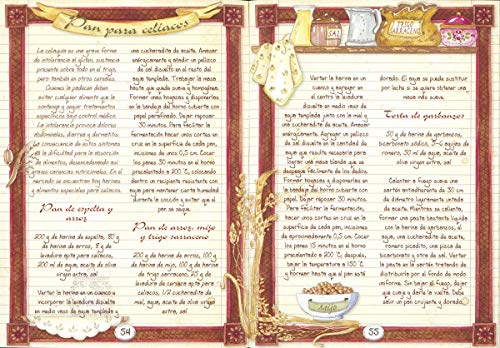 Pan para celíacos
La celiaquía es una grave forma
de intolerancia al gluten, sustancia
presente sobre todo en el trigo,
pero también en otros cereales.
Quienes la padecen deben
evitar cualquier alimento que la
contenga y seguir tratamientos
específicos bajo control médico.
La intolerancia provoca dolores
abdominales, diarrea y dermatitis.
La consecuencia de estos síntomas
es la dificultad para la absorción
de alimentos, desencadenando así
graves carencias nutricionales. En el
mercado se encuentran hoy harinas
y alimentos especiales para celíacos.
Pan de espelta y
arroz
200 g de harina de espelta, 80 g
de harina de arroz, 8 g de
levadura apta para celíacos,
200 ml de agua, aceite de oliva
virgen extra, sal
Verter la harina en un cuenco e
incorporar la levadura disuelta
en medio vaso de agua templada y
una cucharadita de aceite. Amasar
enérgicamente y añadir un pellizco
de sal disuelto en el resto del
agua templada. Trabajar la masa
hasta que quede suave y homogénea.
Formar unas hogazas y disponerlas
en la bandeja del horno cubierta con
papel parafinado. Dejar reposar
30 minutos. Para facilitar la
fermentación hacer unos cortes en
cruz en la superficie de cada pan,
incisiones de unos 0,5 cm. Cocer
los panes 30 minutos en el horno
precalentado a 200 °C, colocando
dentro un recipiente resistente con
agua para mantener cierta humedad
durante la cocción y evitar que el
pan se seque.
Pan de arroz, mijo
y trigo sarraceno
200 g de harina de arroz, 100 g
de harina de mijo, 100 g de harina
de trigo sarraceno, 25 g de
levadura de cerveza apta para
celíacos, 1/2 cucharadita de
miel, agua, aceite de oliva virgen
extra, sal
54
SAL
TRIGO
SARRACENO
Verter la harina en un
cuenco y agregar en
el centro la levadura
disuelta en medio vaso de
agua templada junto con la miel y
una cucharadita de aceite. Amasar
enérgicamente. Agregar un pellizco
de sal disuelta en la cantidad de
agua que resulte necesaria para
lograr una masa blanda que se
despegue fácilmente de los dedos.
Formar hogazas y disponerlas en
la bandeja del horno cubierta con
papel. Dejar reposar 30 minutos.
Para facilitar la fermentación,
hacer unos cortes en cruz en la
superficie de cada pan, incisiones
de aproximadamente 0,5 cm. Cocer
los panes 15 minutos en el horno
precalentado a 200 °C, después,
bajar la temperatura a 150 °C
y hornear hasta que el pan esté
dorado. El agua se puede sustituir
por leche si se quiere obtener una
masa más suave.
Torta de garbanzos
50 g de harina de garbanzos,
bicarbonato sódico, 3-4 agujas de
romero, 50 ml de agua, aceite de
oliva virgen extra, sal
Calentar a fuego suave una
sartén antiadherente de 30 cm
de diámetro ligeramente untada
de aceite. Mientras se calienta,
formar una pasta bastante líquida
con la harina de garbanzos, agua,
una cucharadita de aceite, un
romero picadito, una pizca de
bicarbonato y otra de sal. Verter
la pasta en la sartén tratando de
distribuirla por el fondo de modo
uniforme. Sin bajar el fuego, darle
la vuelta como un crêpe. Debe
salir un pan crujiente y dorado.
Mijo
55